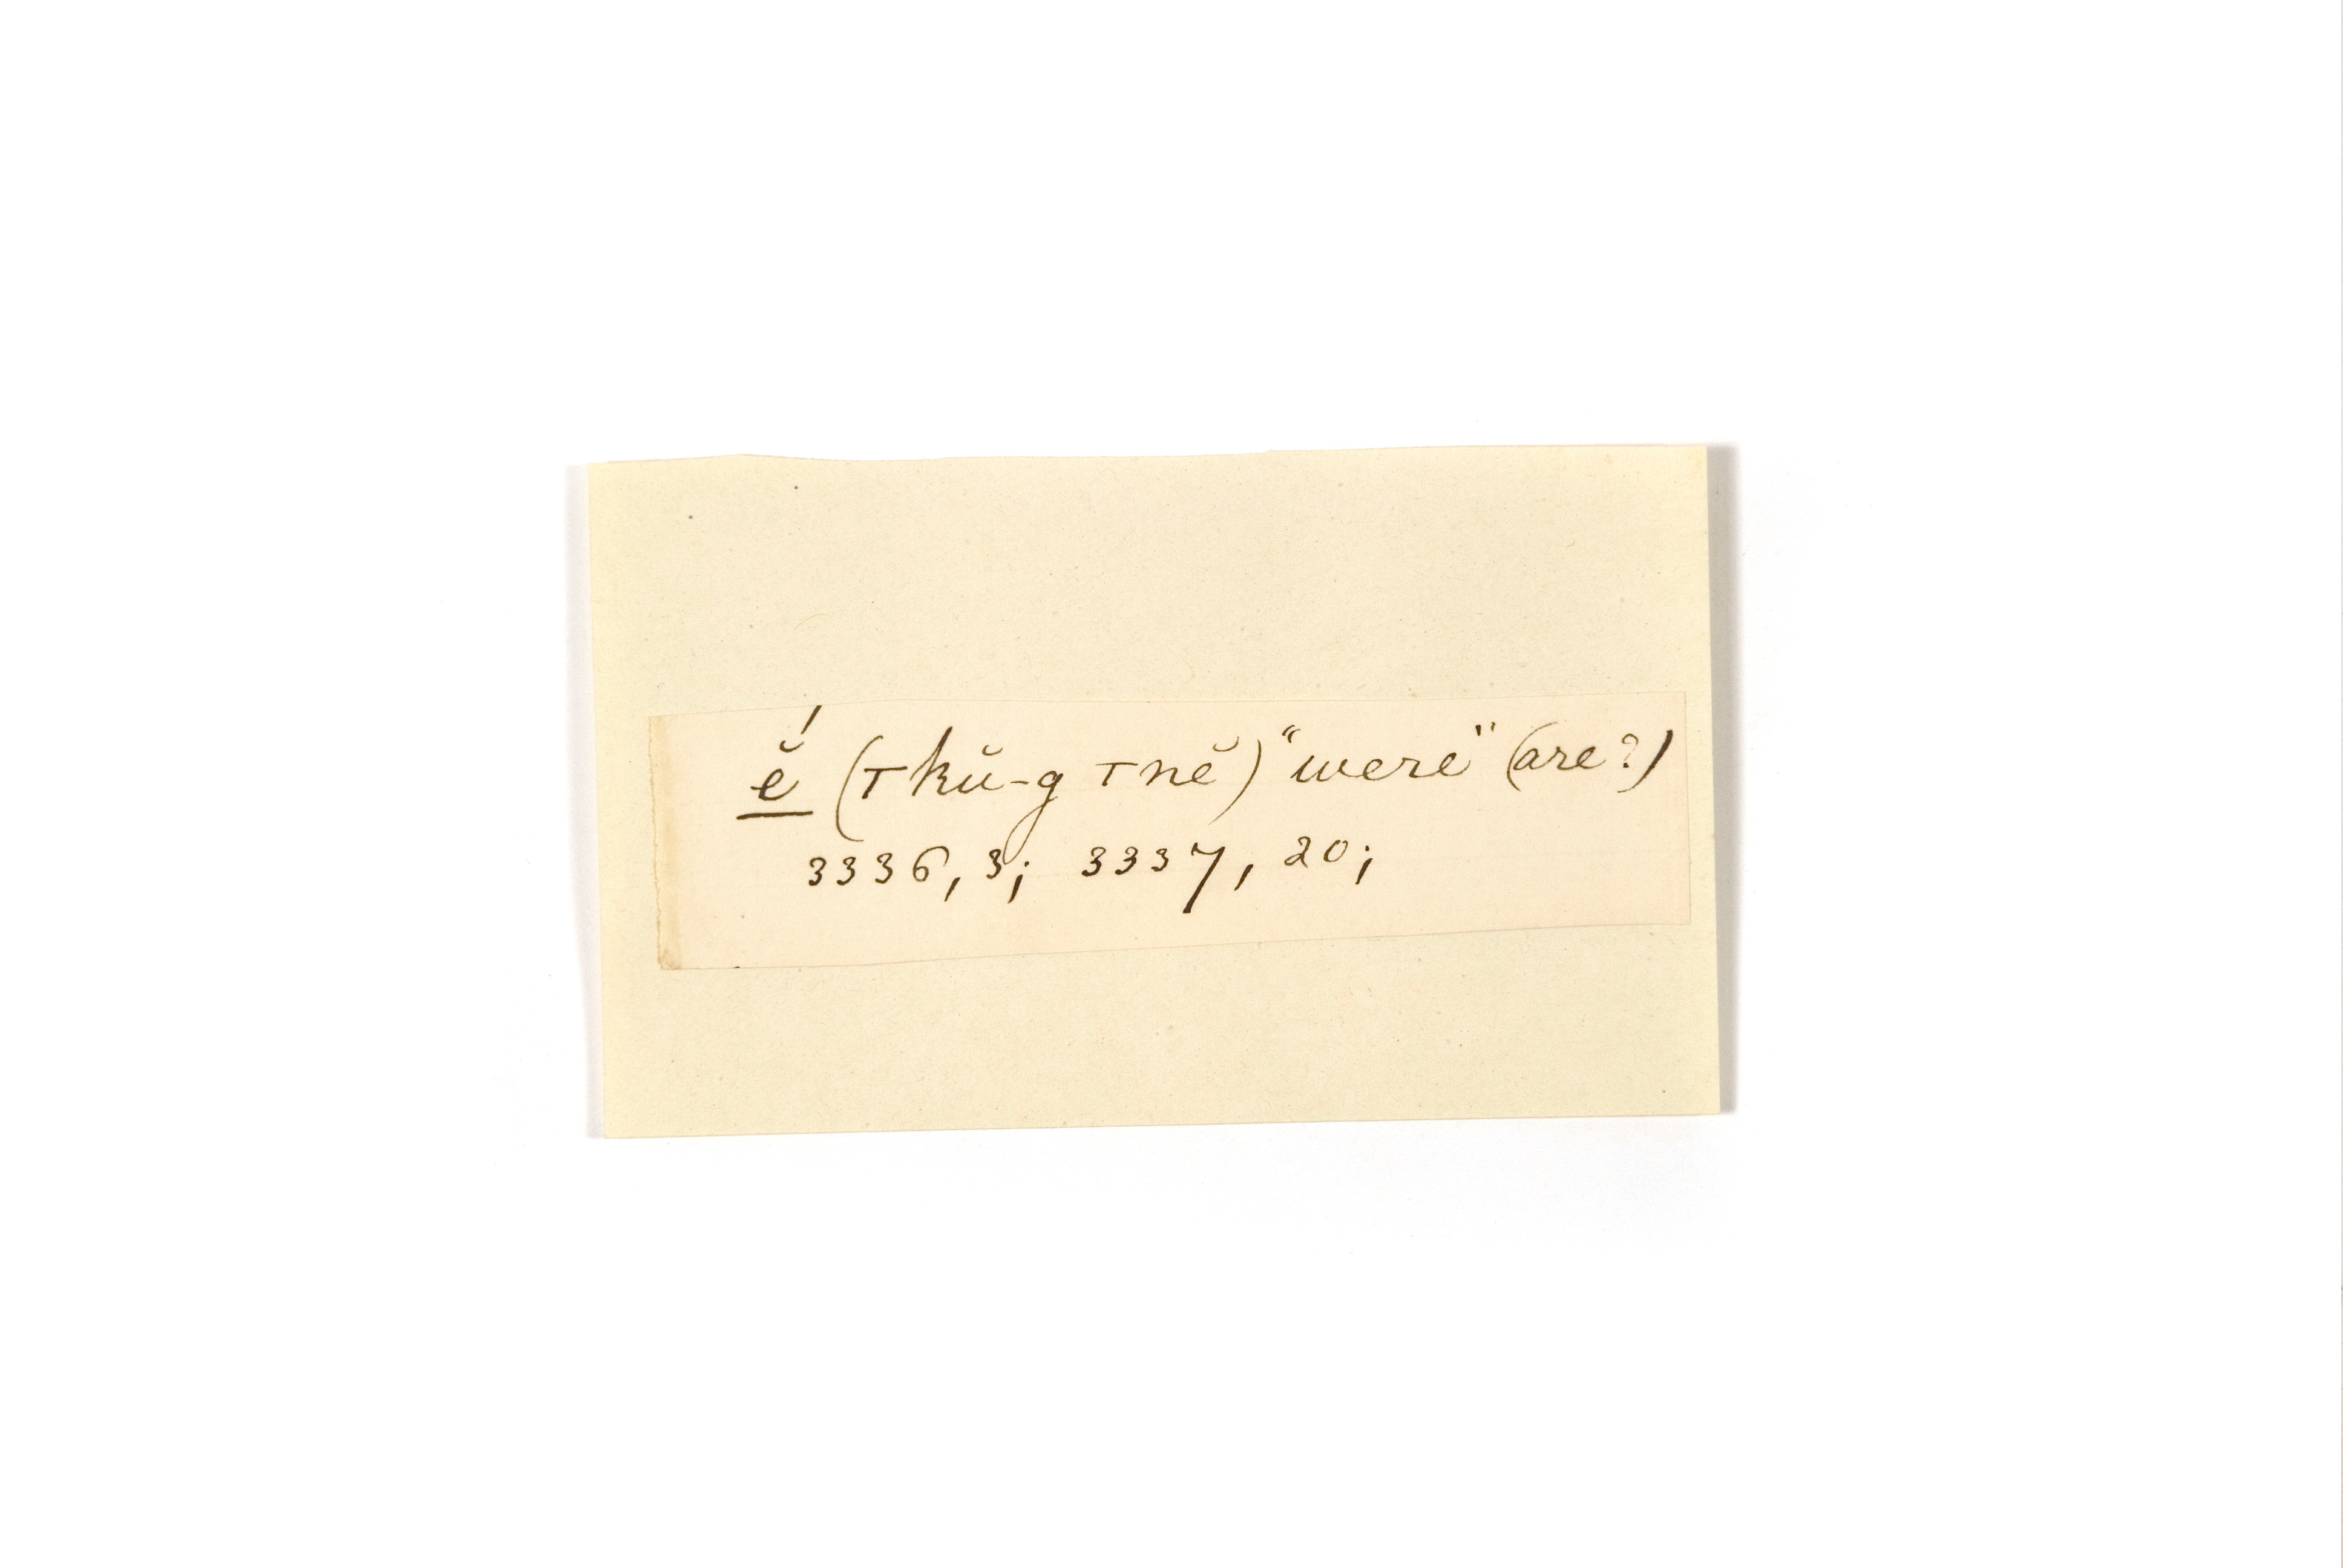 ĕ́ (Tkŭ-g Tnĕ) "were" (are?)
3336, 3; 3337, 20;